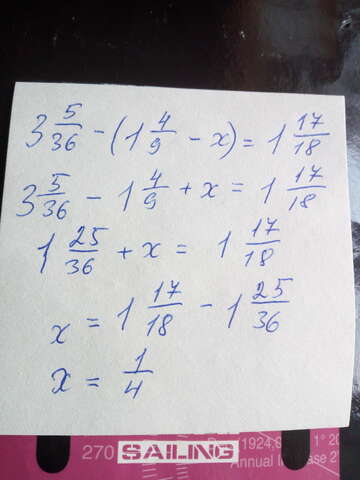 3 5/36 - (1 4/9 - x) = 1 17/18
3 5/36 - 1 4/9 + x = 1 17/18
1 25/36 + x = 1 17/18
x = 1 17/18 - 1 25/36
x = 1/4
270 SAILING 1924, 1° 20
Annual In ase 2'